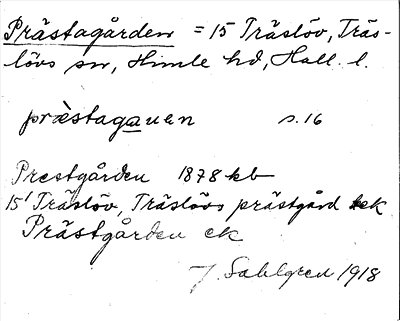 Prästagården = 15 Träslöv, Träs-
lövs sn, Himle hd, Hall. l.
præ̀stagauen s. 16
Prestgården 1878 kb
15¹ Träslöv, Träslövs prästgård ek
Prästgården ek
J. Sahlgren 1918